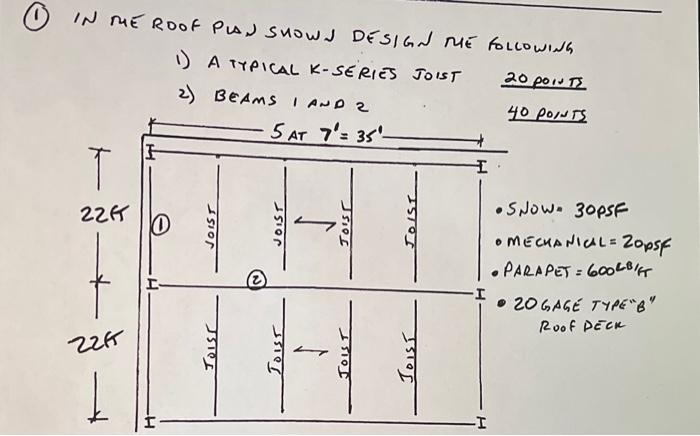 ① IN THE ROOF PLAN SHOWN DESIGN THE FOLLOWING
1) A TYPICAL K-SERIES JOIST 20 POINTS
2) BEAMS 1 AND 2 40 POINTS
5 AT 7' = 35'
22FT
①
JOIST
JOIST
JOIST
JOIST
• SNOW = 30PSF
• MECHANICAL = 20PSF
• PARAPET = 600LB/FT
• 20 GAGE TYPE "B"
ROOF DECK
②
22FT
JOIST
JOIST
JOIST
JOIST